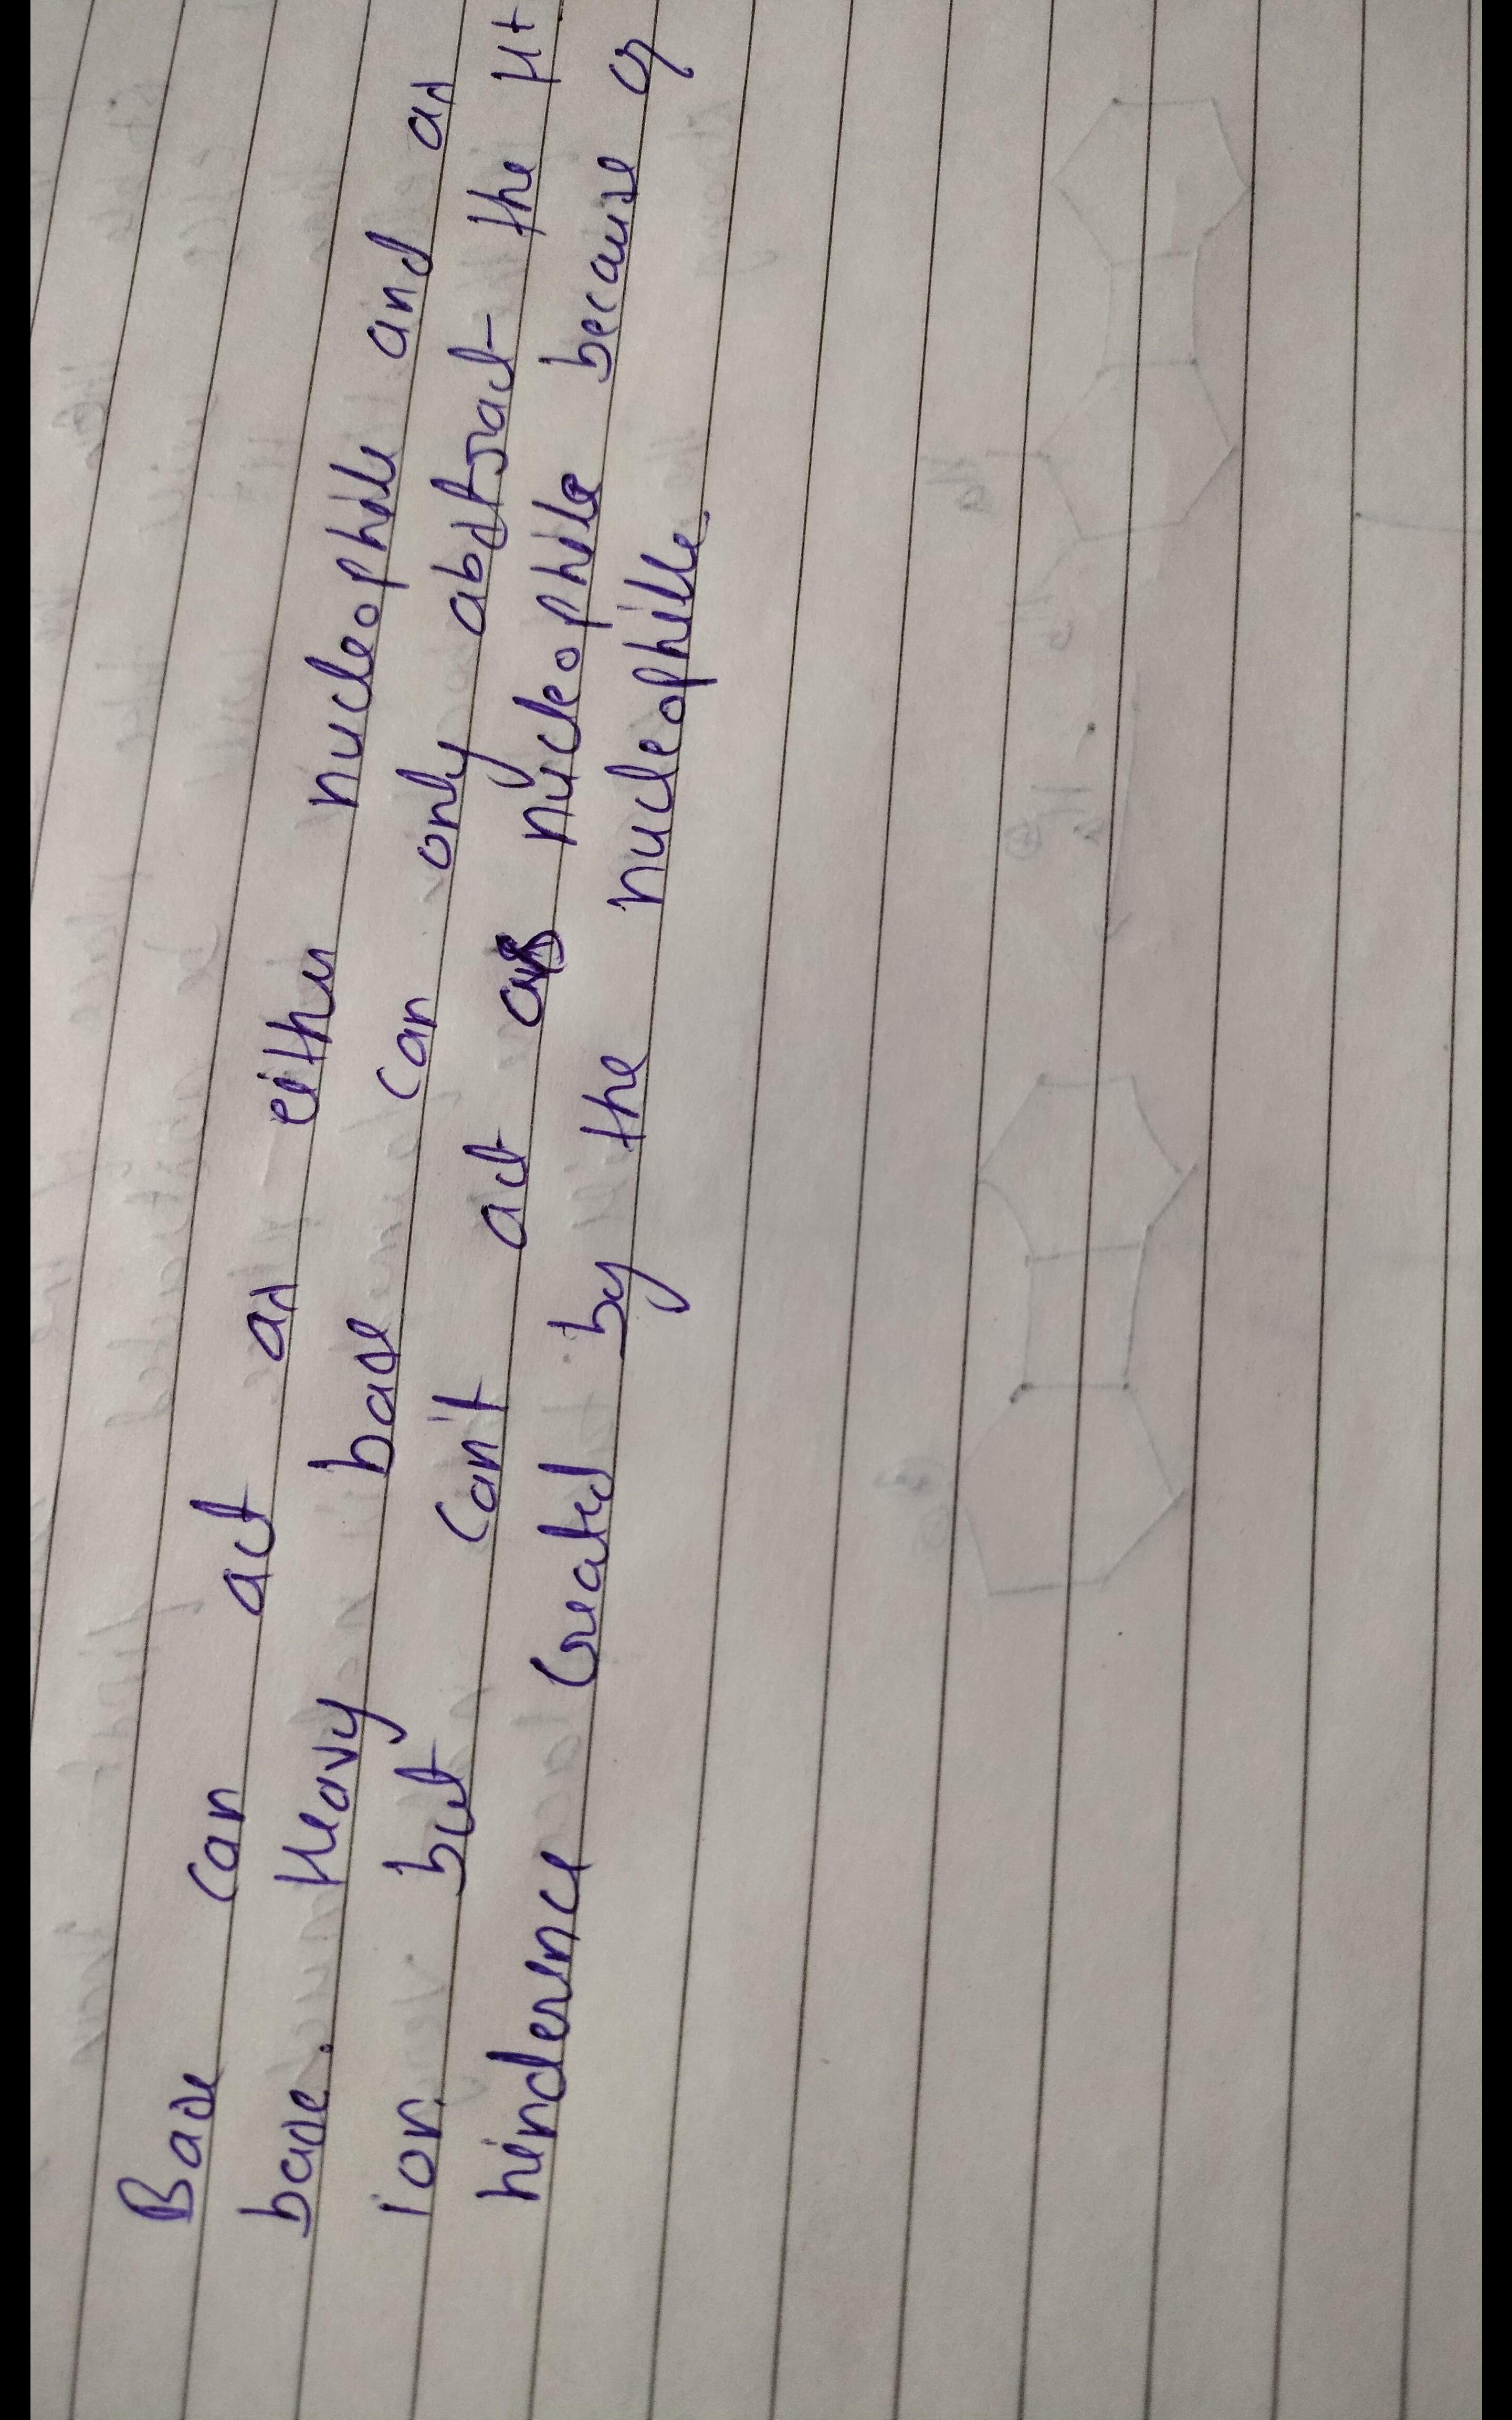 Base can act as either nucleophile and as
base. Heavy base can only abstract the H+
ion but can't act as nucleophile because of
hinderence created by the nucleophille.